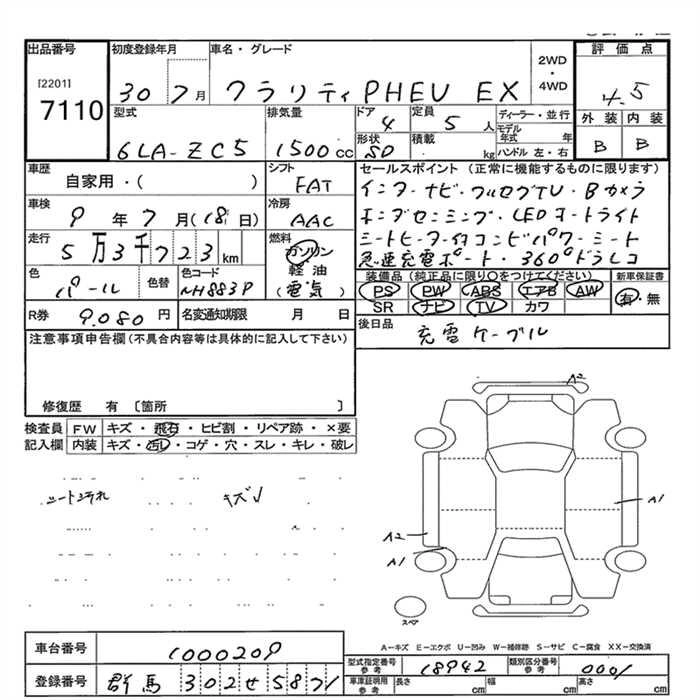 出品番号
[2201]
7110
初度登録年月
30 7月
車名・グレード
クラリティPHEV EX
2WD
・
4WD
評価点
4.5
外装 内装
B B
型式
6LA-ZC5
排気量
1500cc
ドア
4
定員
5人
形状
SD
積載
kg
ディーラー・並行
モデル年式 年
ハンドル 左・右
車歴
自家用・( )
シフト
FAT
車検
9年7月(18日)
冷房
AAC
走行
5万3千723km
燃料
ガソリン
軽油
(電気)
色
パール
色替
色コード
NH883P
R券 9.080円
名変通知期限 月 日
セールスポイント(正常に機能するものに限ります)
インターナビ・フルセグTV・Bカメラ
ホンダセンシング・LEDオートライト
シートヒーター付コンビパワーシート
急速充電ポート・360°ドラレコ
装備品(純正品に限り○をつけてください)
PS PW ABS エアB AW
SR ナビ TV カワ
新車保証書
有・無
後日品
充電ケーブル
注意事項申告欄(不具合内容等は具体的に記入して下さい)
修復歴 有 〔箇所 〕
検査員記入欄
FW キズ・飛石・ヒビ割・リペア跡・×要
内装 キズ・汚レ・コゲ・穴・スレ・キレ・破レ
キズ
A2
A1
A2
A1
スペア
A-キズ E-エクボ U-凹み W-補修跡 S-サビ C-腐食 XX-交換済
車台番号
1000209
登録番号
群馬 302せ5871
型式指定番号
参考
18942
類別区分番号
参考
0001
車庫証明用
参考
長さ cm 幅 cm 高さ cm